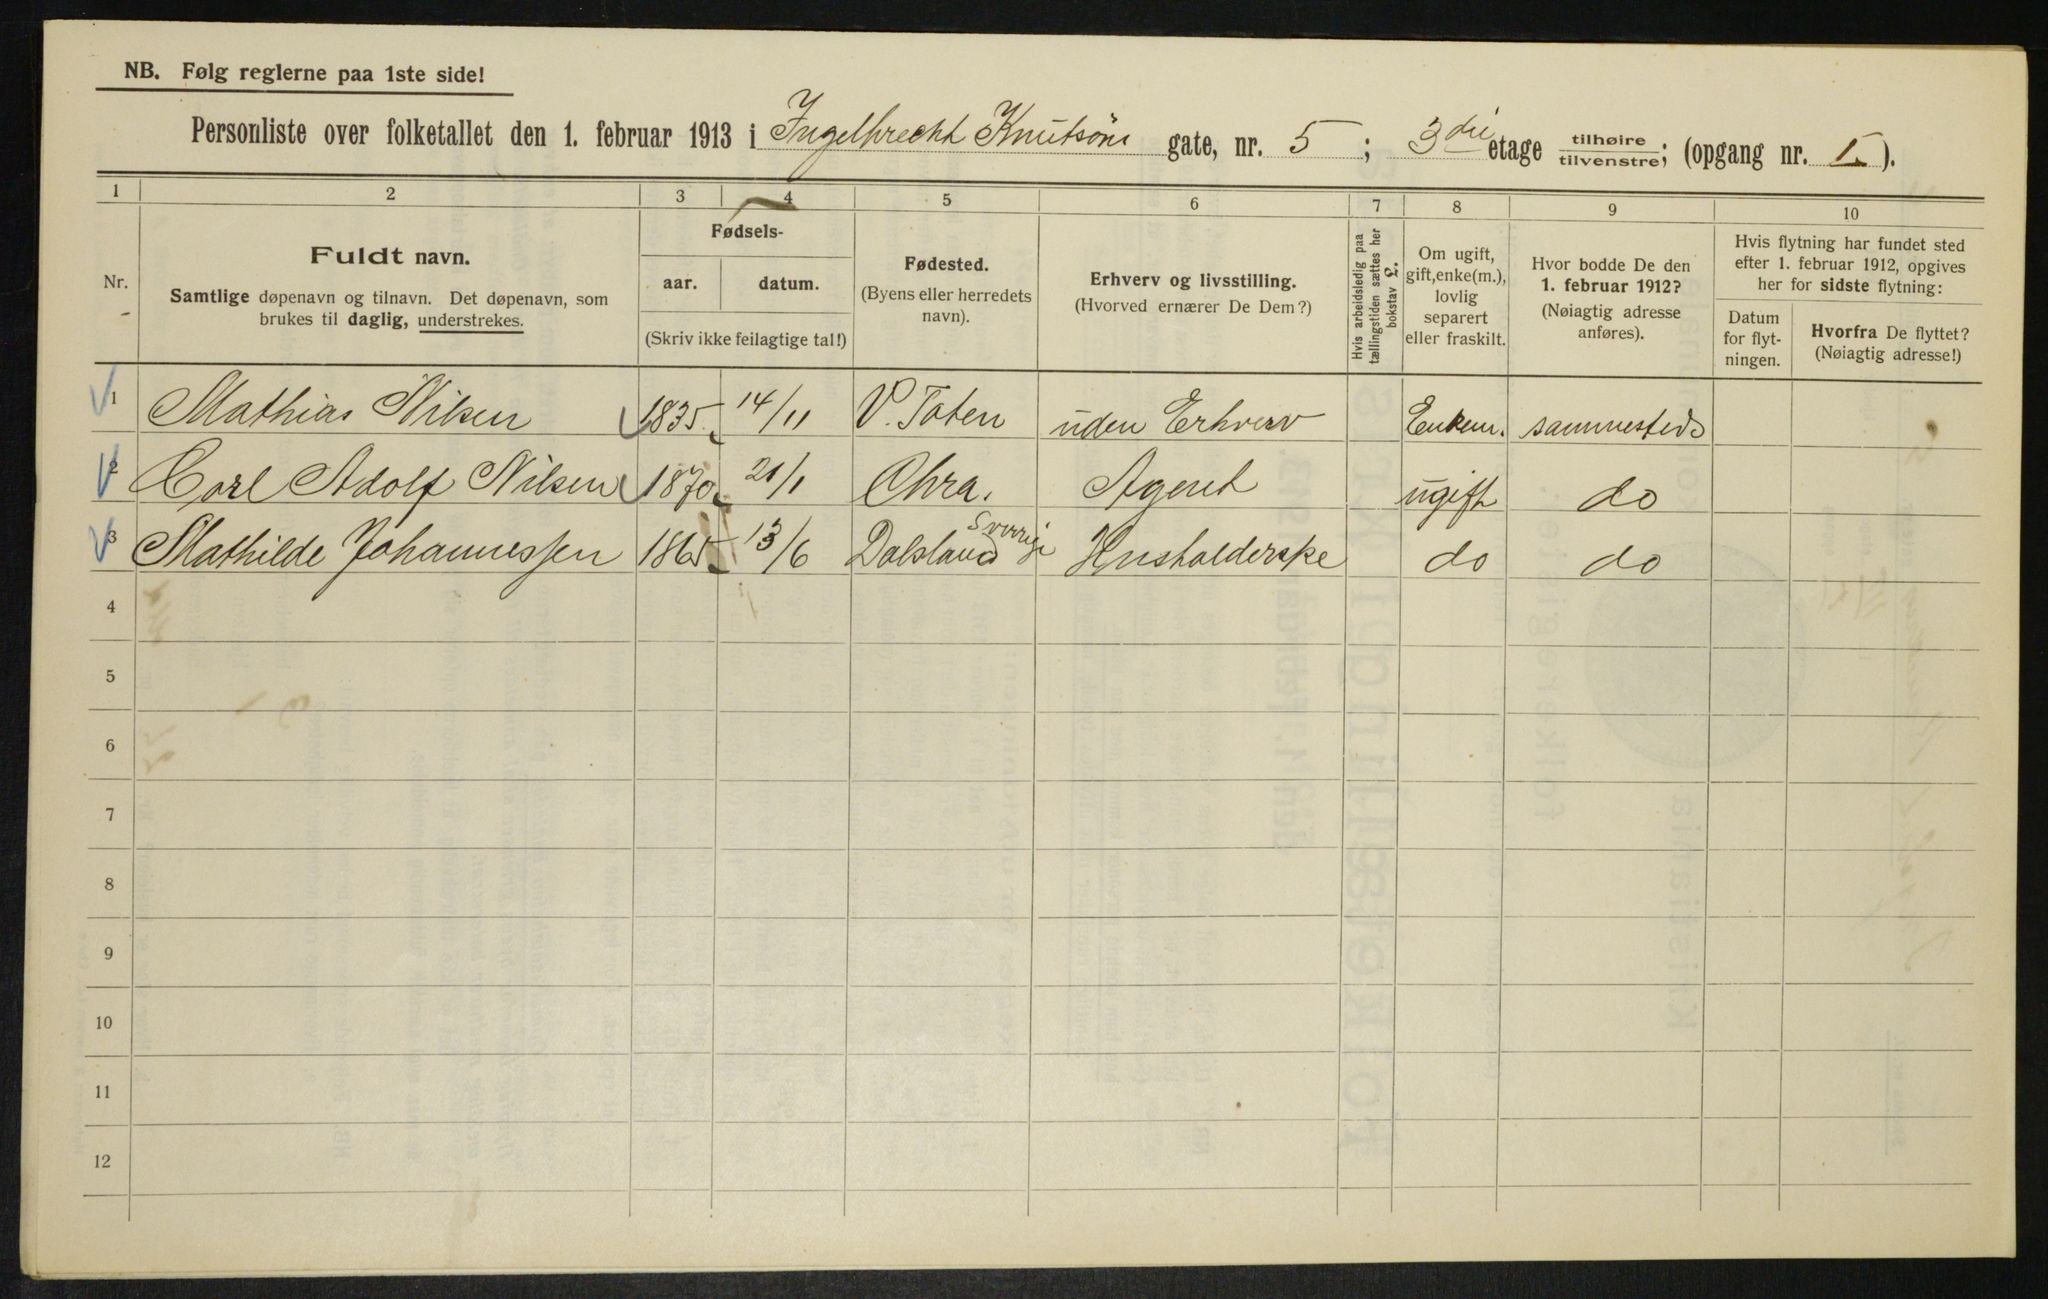 NB. Følg reglerne paa 1ste side!
Personliste over folketallet den 1. februar 1913 i Ingelbrecht Knutsøns gate, nr. 5 ; 3die etage tilhøire / tilvenstre ; (opgang nr. I ).
1 2 3 4 5 6 7 8 9 10
Nr.
Fuldt navn.
Samtlige døpenavn og tilnavn. Det døpenavn, som
brukes til daglig, understrekes.
Fødsels-
aar. datum.
(Skriv ikke feilagtige tal!)
Fødested.
(Byens eller herredets
navn).
Erhverv og livsstilling.
(Hvorved ernærer De Dem?)
Hvis arbeidsledig paa
tællingstiden sættes her
bokstav L.
Om ugift,
gift, enke(m.),
lovlig
separert
eller fraskilt.
Hvor bodde De den
1. februar 1912?
(Nøiagtig adresse
anføres).
Hvis flytning har fundet sted
efter 1. februar 1912, opgives
her for sidste flytning:
Datum
for flyt-
ningen.
Hvorfra De flyttet?
(Nøiagtig adresse!)
1 Mathias Nilsen 1835 14/11 V. Toten uden Erhverv Enkem. sammesteds
2 Carl Adolf Nilsen 1870 21/1 Chra. Agent ugift do
3 Mathilde Johannessen 1865 13/6 Dalsland Sverrige Husholderske do do
4
5
6
7
8
9
10
11
12